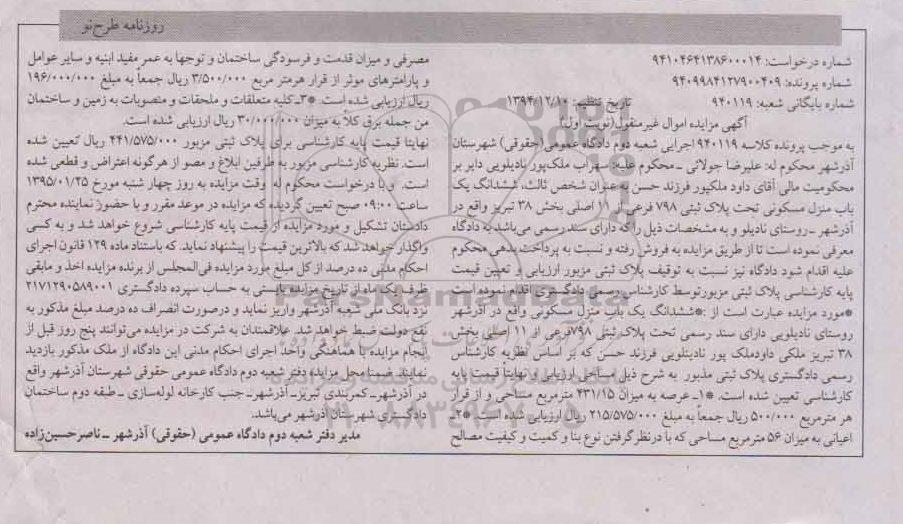 روزنامه طرح‌نو
شماره درخواست: ۹۴۱۰۴۶۴۱۳۸۶۰۰۰۱۴
شماره پرونده: ۹۴۰۹۹۸۴۱۲۷۹۰۰۴۰۹
شماره بایگانی شعبه: ۹۴۰۱۱۹ تاریخ تنظیم: ۱۳۹۴/۱۲/۱۰
آگهی مزایده اموال غیرمنقول(نوبت اول)
به موجب پرونده کلاسه ۹۴۰۱۱۹ اجرایی شعبه دوم دادگاه عمومی(حقوقی) شهرستان
آذرشهر محکوم له: علیرضا جولائی ـ محکوم علیه: سهراب ملک‌پور نادیلویی دایر بر
محکومیت مالی آقای داود ملکپور فرزند حسن به عنوان شخص ثالث، ششدانگ یک
باب منزل مسکونی تحت پلاک ثبتی ۷۹۸ فرعی از ۱۱ اصلی بخش ۳۸ تبریز واقع در
آذرشهر ـ روستای نادیلو و به مشخصات ذیل را که دارای سند رسمی می‌باشد به دادگاه
معرفی نموده است تا از طریق مزایده به فروش رفته و نسبت به پرداخت بدهی محکوم
علیه اقدام شود دادگاه نیز نسبت به توقیف پلاک ثبتی مزبور ارزیابی و تعیین قیمت
پایه کارشناسی پلاک ثبتی مزبور توسط کارشناس رسمی دادگستری اقدام نموده است
*مورد مزایده عبارت است از :*ششدانگ یک باب منزل مسکونی واقع در آذرشهر
روستای نادیلویی دارای سند رسمی تحت پلاک ثبتی ۷۹۸ فرعی از ۱۱ اصلی بخش
۳۸ تبریز ملکی داودملک پور نادینلویی فرزند حسن که بر اساس نظریه کارشناس
رسمی دادگستری پلاک ثبتی مذبور به شرح ذیل مساحی ارزیابی و نهایتا قیمت پایه
کارشناسی تعیین شده است. *۱ـ عرصه به میزان ۴۳۱/۱۵ مترمربع مساحی و از قرار
هر مترمربع ۵۰۰/۰۰۰ ریال جمعاً به مبلغ ۲۱۵/۵۷۵/۰۰۰ ریال ارزیابی شده است. *۲ـ
اعیانی به میزان ۵۶ مترمربع مساحی که با درنظر گرفتن نوع بنا و کمیت و کیفیت مصالح
مصرفی و میزان قدمت و فرسودگی ساختمان و توجها به عمر مفید ابنیه و سایر عوامل
و پارامترهای موثر از قرار هرمتر مربع ۳/۵۰۰/۰۰۰ ریال جمعاً به مبلغ ۱۹۶/۰۰۰/۰۰۰
ریال ارزیابی شده است. *۳ـ کلیه متعلقات و ملحقات و منصوبات به زمین و ساختمان
من جمله برق کلاً به میزان ۳۰/۰۰۰/۰۰۰ ریال ارزیابی شده است.
نهایتا قیمت پایه کارشناسی برای پلاک ثبتی مزبور ۴۴۱/۵۷۵/۰۰۰ ریال تعیین شده
است. نظریه کارشناسی مزبور به طرفین ابلاغ و مصو از هرگونه اعتراض و قطعی شده
است. و با درخواست محکوم له وقت مزایده به روز چهار شنبه مورخ ۱۳۹۵/۰۱/۲۵
ساعت ۰۹:۰۰ صبح تعیین گردیده که مزایده در موعد مقرر و با حضور نماینده محترم
دادستان تشکیل و مورد مزایده از قیمت پایه کارشناسی شروع خواهد شد و به کسی
واگذار خواهد شد که بالاترین قیمت را پیشنهاد نماید. که باستناد ماده ۱۲۹ قانون اجرای
احکام مدنی ده درصد از کل مبلغ مورد مزایده فی‌المجلس از برنده مزایده اخذ و مابقی
ظرف یک ماه از تاریخ مزایده بایستی به حساب سپرده دادگستری ۲۱۷۱۲۹۰۵۸۹۰۰۱
نزد بانک ملی شعبه آذرشهر واریز نماید و درصورت انصراف ده درصد مبلغ مذکور به
نفع دولت ضبط خواهد شد. علاقمندان به شرکت در مزایده می‌توانند پنج روز قبل از
انجام مزایده با هماهنگی واحد اجرای احکام مدنی این دادگاه از ملک مذکور بازدید
نمایند. ضمنا محل مزایده دفتر شعبه دوم دادگاه عمومی حقوقی شهرستان آذرشهر واقع
در آذرشهرـ کمربندی تبریزـ آذرشهرـ جنب کارخانه لوله‌سازی ـ طبقه دوم ساختمان
دادگستری شهرستان آذرشهر می‌باشد.
مدیر دفتر شعبه دوم دادگاه عمومی (حقوقی) آذرشهر ـ ناصر حسین‌زاده
ParsNamadData